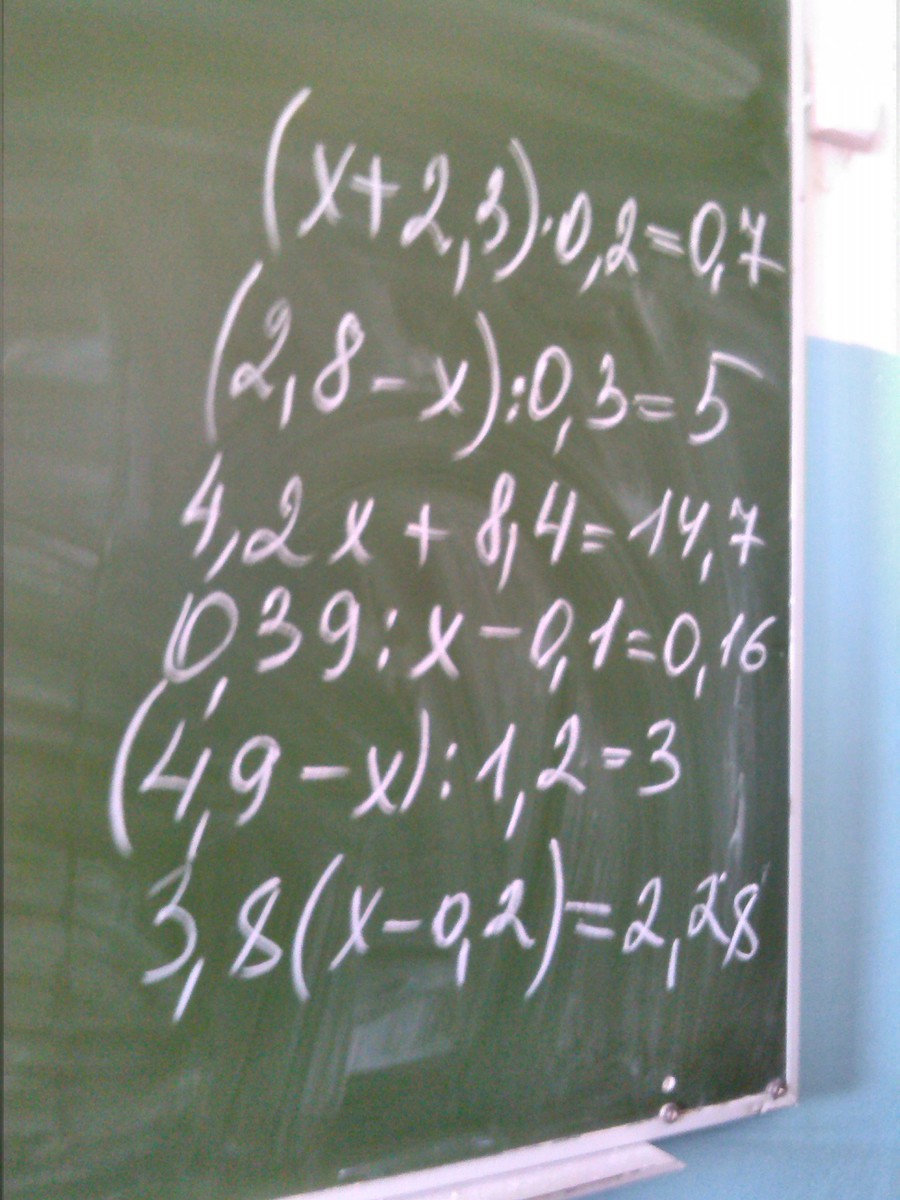 (x+2,3)·0,2=0,7
(2,8-x):0,3=5
4,2x+8,4=14,7
0,39:x-0,1=0,16
(4,9-x):1,2=3
3,8(x-0,2)=2,28